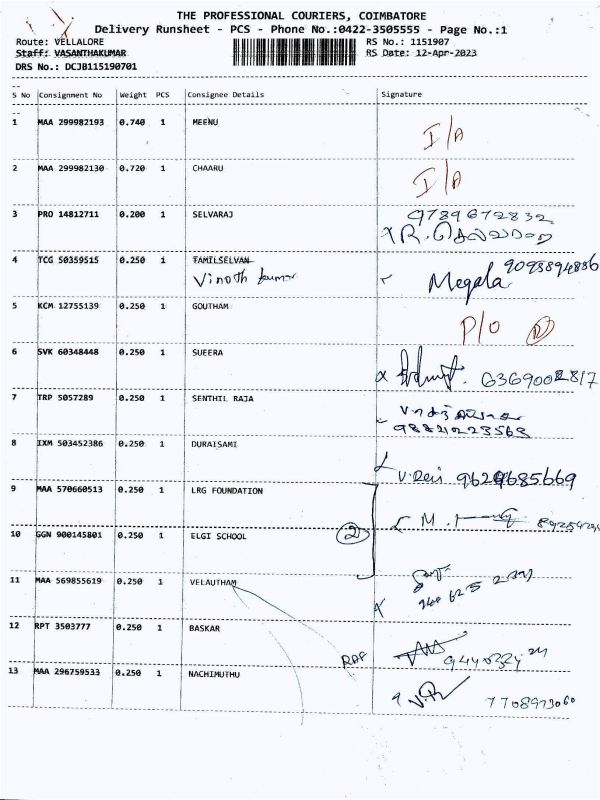 THE PROFESSIONAL COURIERS, COIMBATORE
Delivery Runsheet - PCS - Phone No.:0422-3505555 - Page No.:1
Route: VELLALORE RS No.: 1151907
Staff: VASANTHAKUMAR RS Date: 12-Apr-2023
DRS No.: DCJB115190701
S No Consignment No Weight PCS Consignee Details Signature
1 MAA 299982193 0.740 1 MEENU I/A
2 MAA 299982130 0.720 1 CHAARU I/A
3 PRO 14812711 0.200 1 SELVARAJ 9789672832
4 TCG 50359515 0.250 1 TAMILSELVAN
Vinoth kumar Megala
5 KCM 12755139 0.250 1 GOUTHAM P/O
6 SVK 60348448 0.250 1 SUEERA
7 TRP 5057289 0.250 1 SENTHIL RAJA
8 IXM 503452386 0.250 1 DURAISAMI
9 MAA 570660513 0.250 1 LRG FOUNDATION
10 GGN 900145801 0.250 1 ELGI SCHOOL 2
11 MAA 569855619 0.250 1 VELAUTHAM
12 RPT 3503777 0.250 1 BASKAR
13 MAA 296759533 0.250 1 NACHIMUTHU